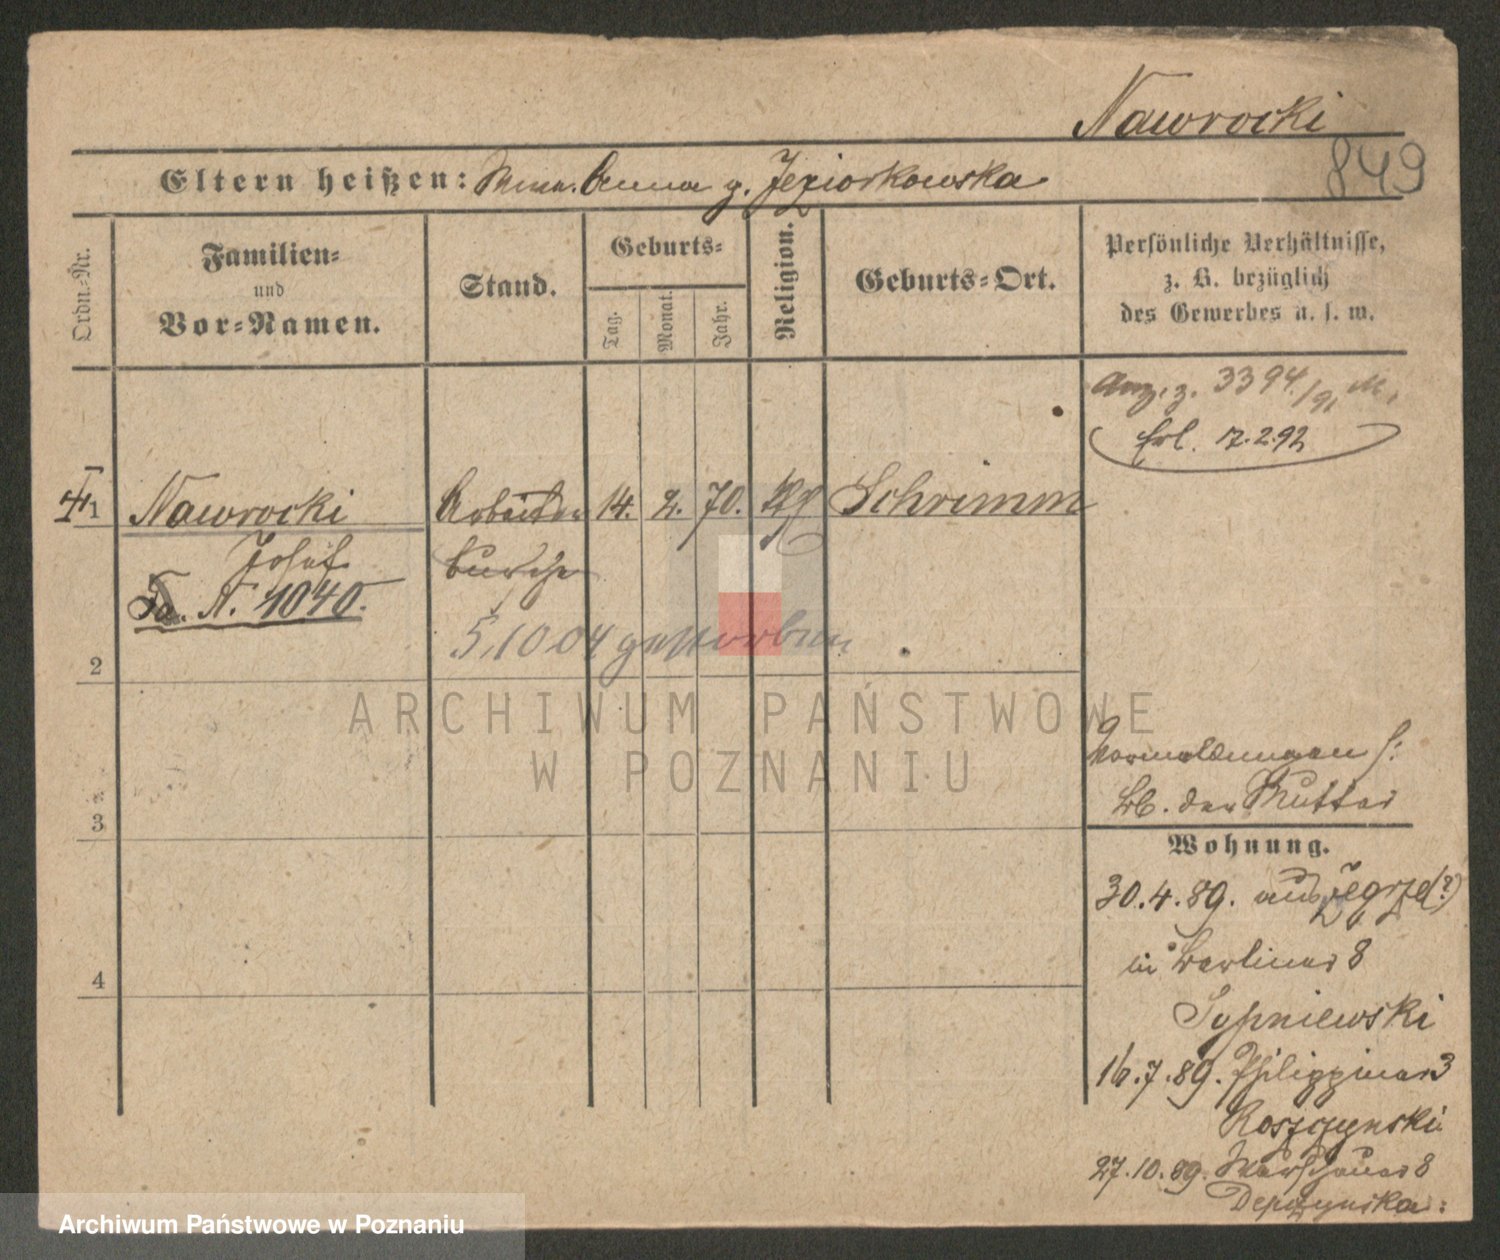 Nawrocki
849
Eltern heißen: Anna g. Jeziorkowska
Ordn.-Nr.
Familien- und Vor-Namen.
Stand.
Geburts-
Tag.
Monat.
Jahr.
Religion.
Geburts-Ort.
Persönliche Verhältnisse,
z. B. bezüglich
des Gewerbes u. s. w.
Anz. z. 3394/91 M.
Erl. 17.2.92
1 Nawrocki Arbeiter 14. 2. 70. Schrimm
Josef bursche
N. 1040.
5,10 04 gestorben
2
3
4
der Mutter
Wohnung.
30.4.89. aus Zegrze(?)
in Berliner 8
Sypniewski
16.7.89. Philippiner 3
Roszczynski
27.10.89. Warschauer 8
Depczynska.
ARCHIWUM PAŃSTWOWE
W POZNANIU
Archiwum Państwowe w Poznaniu